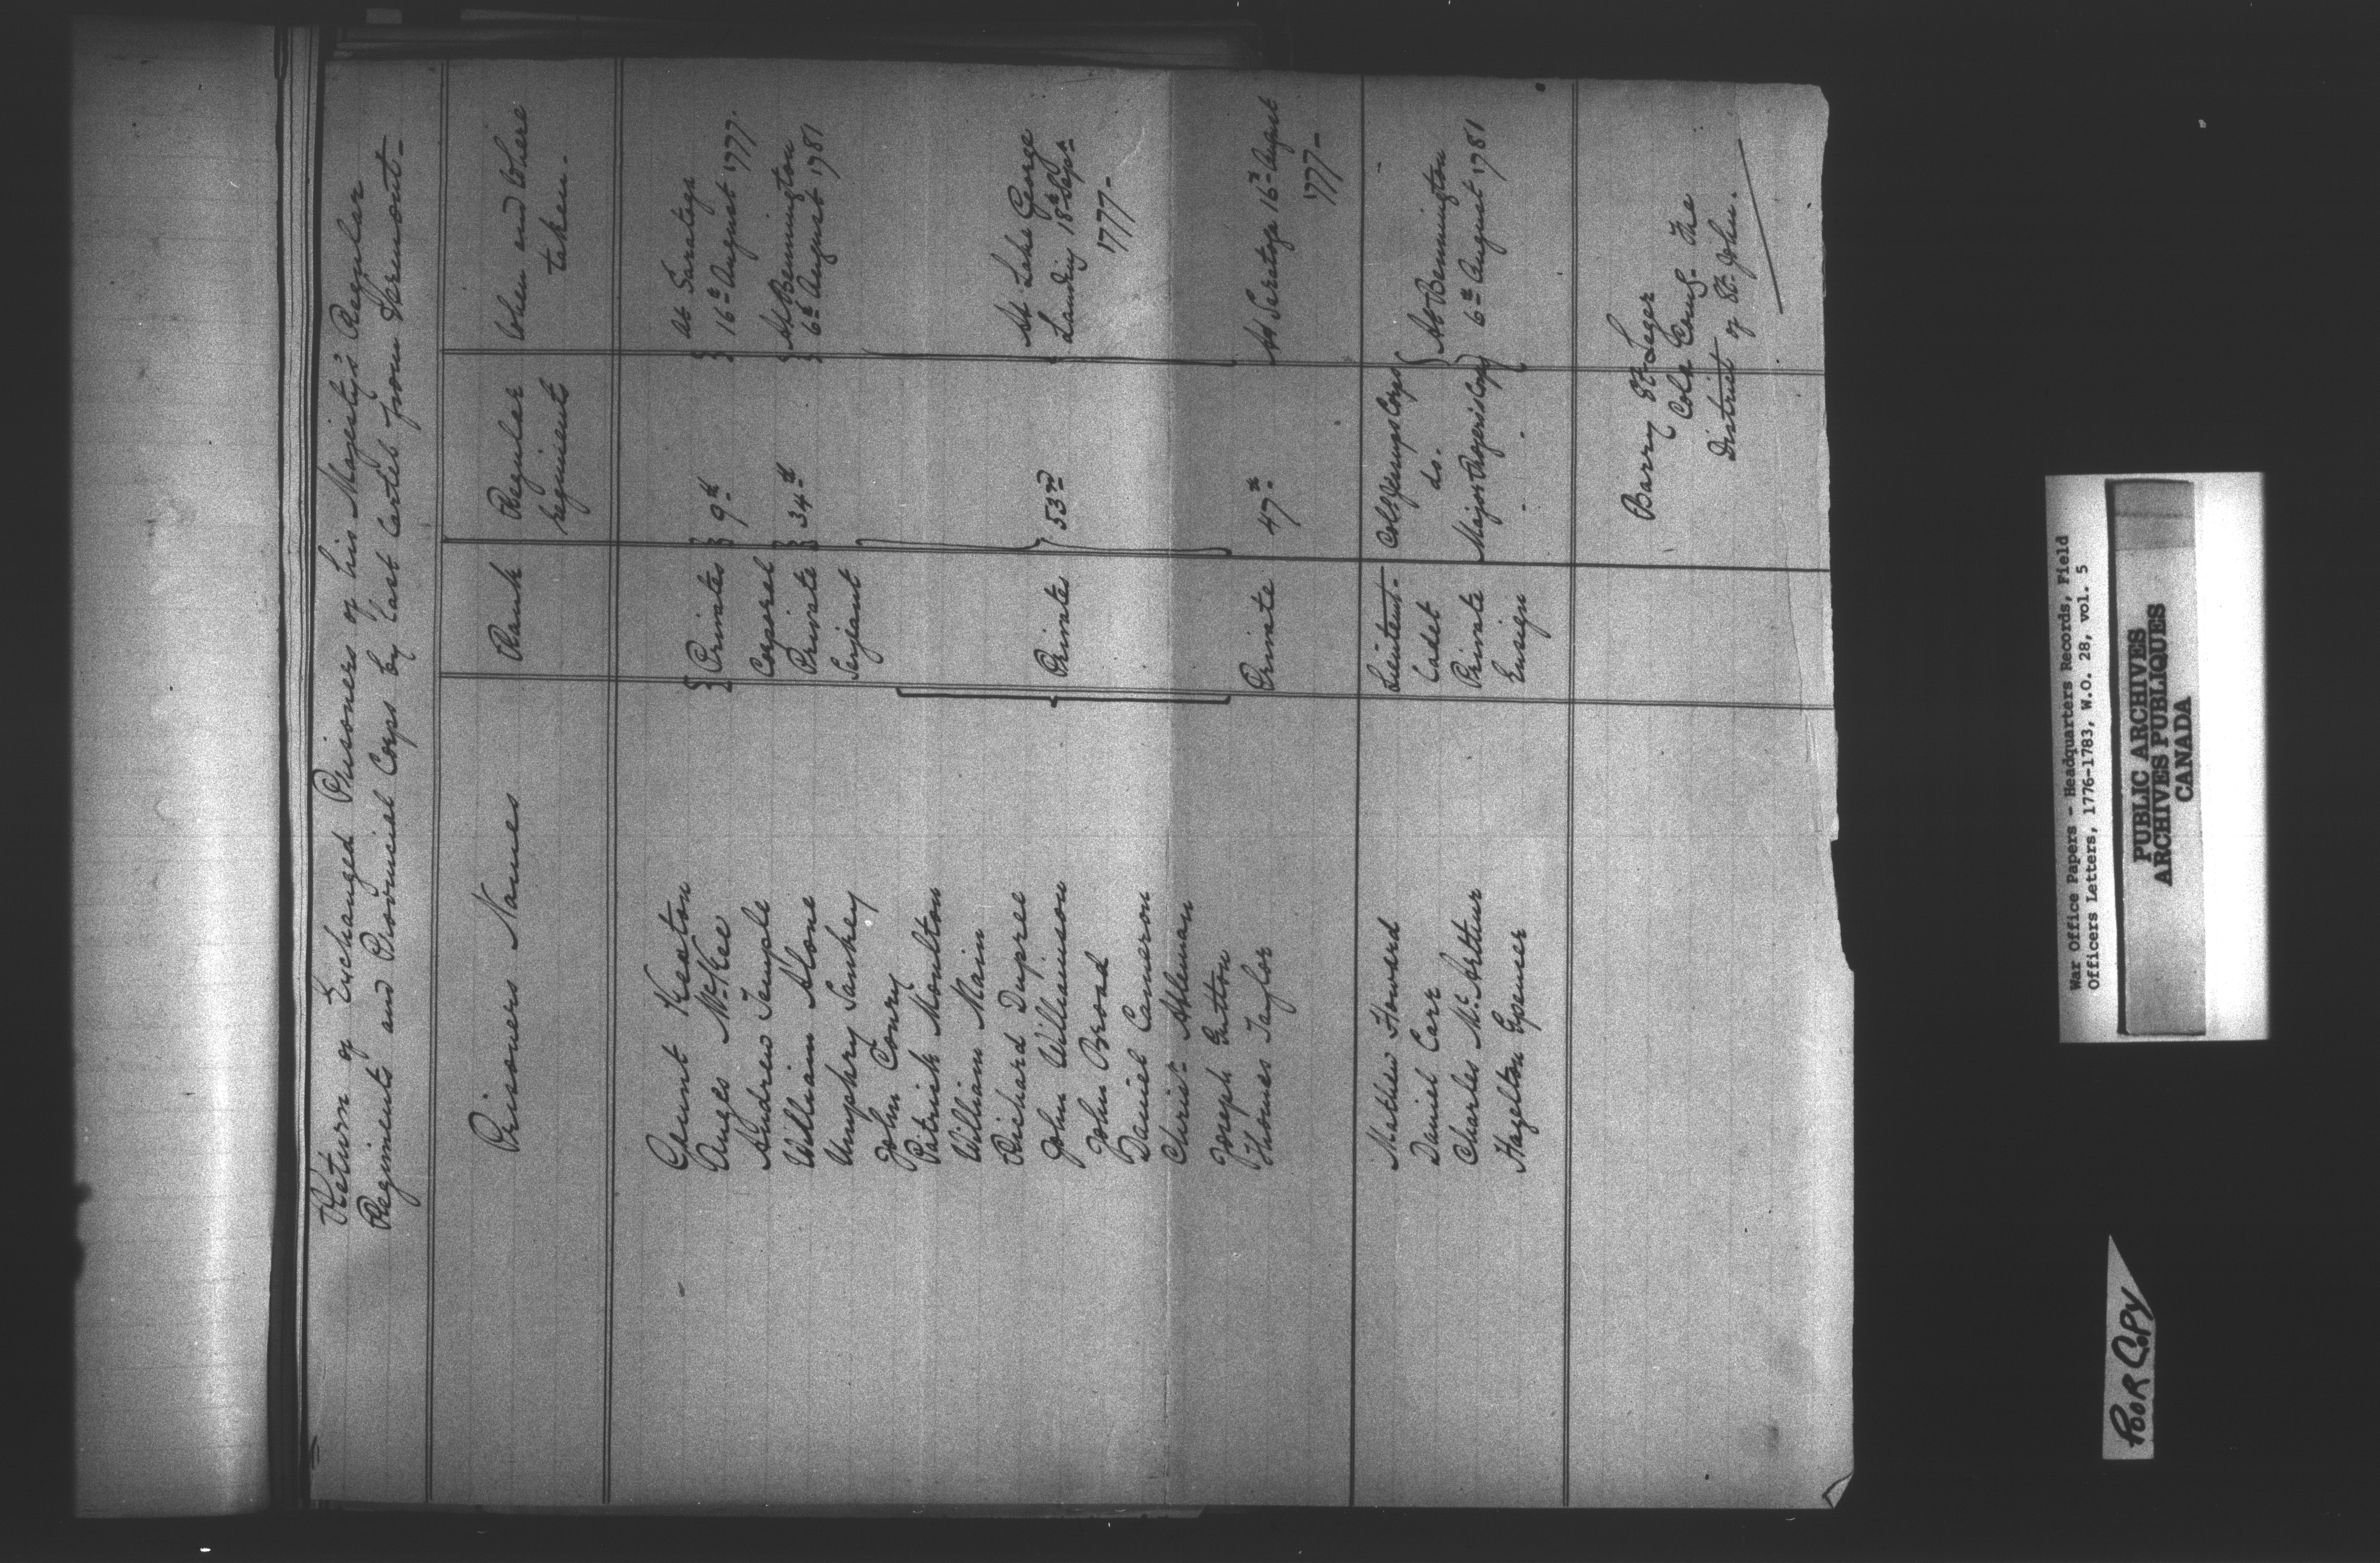 Return of Exchanged Prisoners of his Majesty's Regular
Regiments and Provincial Corps by last Cartel from Varemont-
Prisoners Names Rank Regular regiments When and Where taken.
Gaunt Keaton
Anges McKee } Privates } 9th } At Saratoga 16th August 1777.
Andrew Temple Corporal
William Alone Private } 34th } At Bennington 6th August 1781
Umphry Sankey Serjeant
John Conry
Patrick Moulton
William Main
Richard Dupree
John Williamson Private 53rd At Lake George Landing 18th of Sept 1777-
John Broad
Daniel Cameron
Christ Ableman
Joseph
Thomas Taylor Private 47th At Saratoga 16th August 1777-
Mathew Howard Lieutent- Coll Jessups Corps
Daniel Carr Cadet do. } At Bennington
Charles McArthur Private Major Rogers's Corps } 6th August 1781
Hazelton Spencer Ensign " "
Barry St Leger
Coln Comg. the
District of St John.
War Office Papers - Headquarters Records, Field
Officers Letters, 1776-1783, W.O. 28, vol. 5
PUBLIC ARCHIVES
ARCHIVES PUBLIQUES
CANADA
POOR COPY